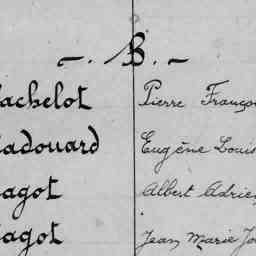 -. B. -
achelot Pierre Franço
adouard Eugène Louis
agot Albert Adrie
agot Jean Marie Jo